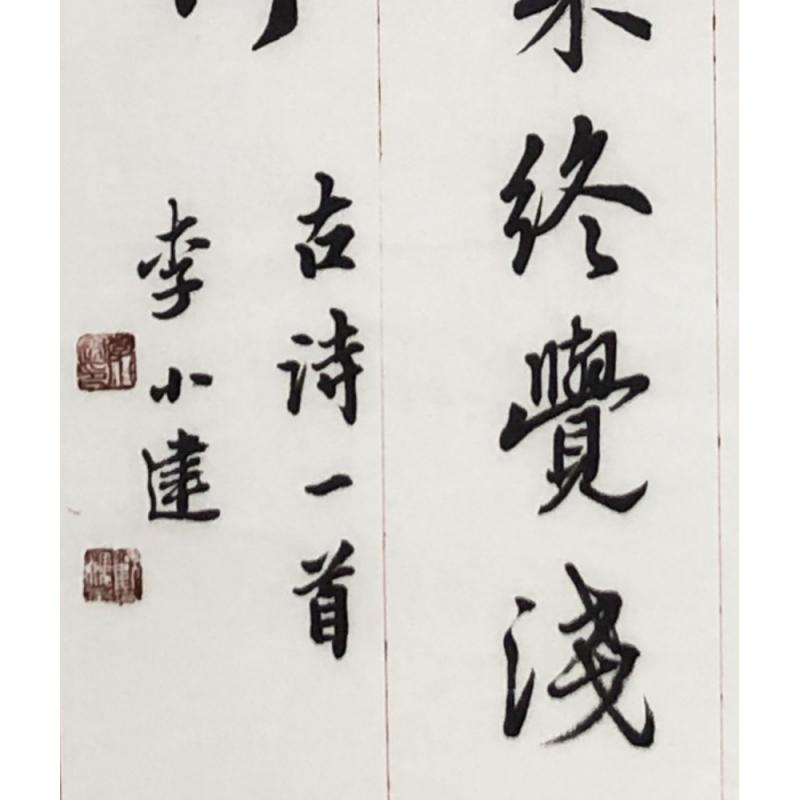 終覺淺
古诗一首
李小建